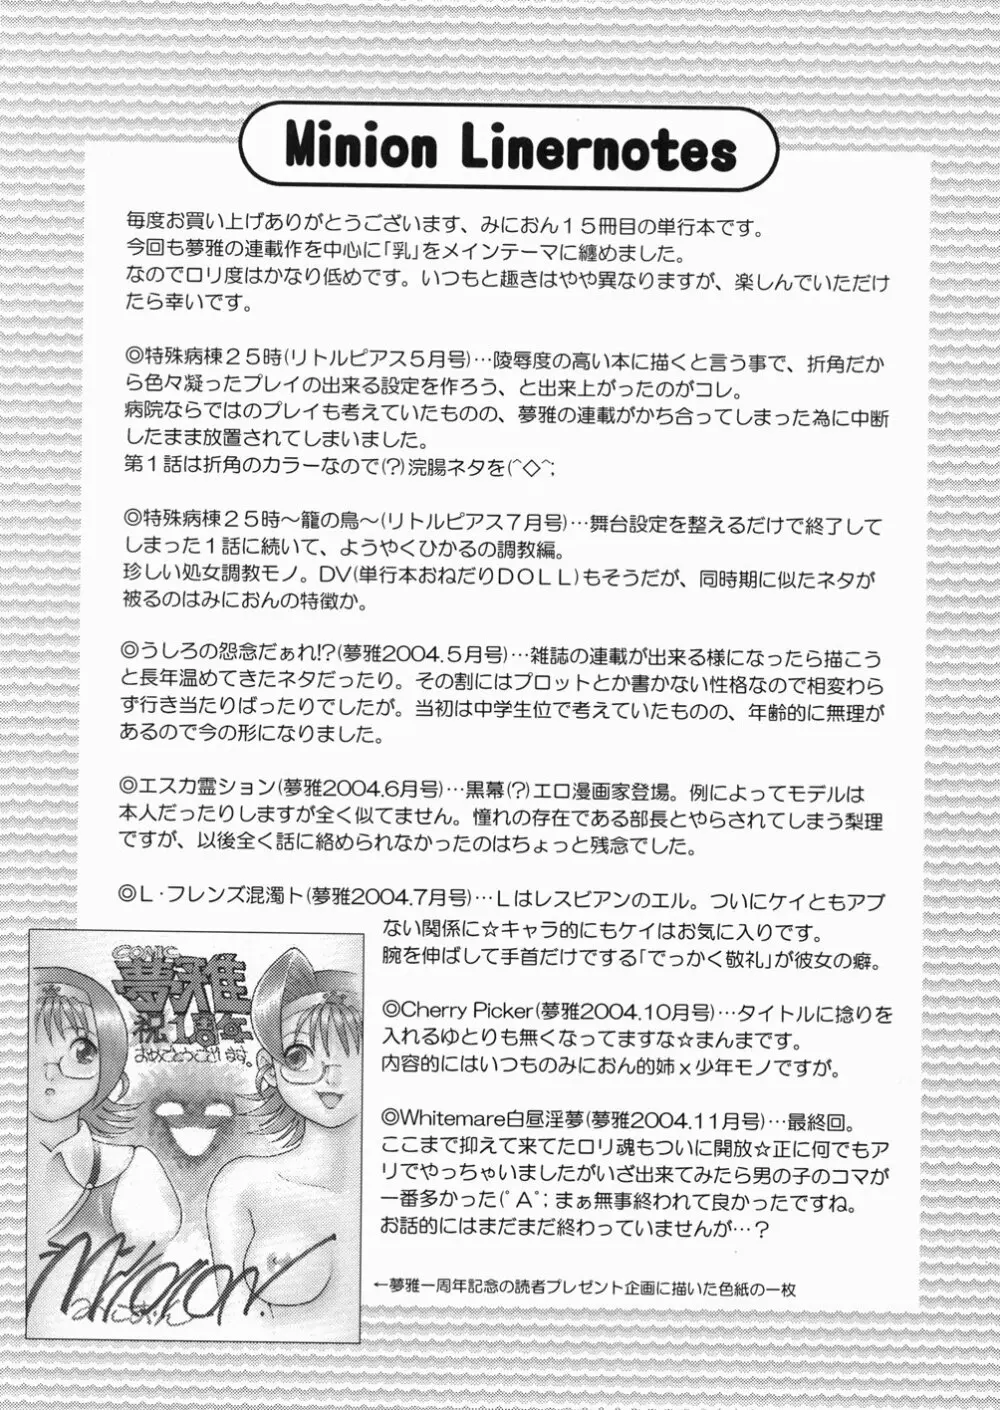 Minion Linernotes
毎度お買い上げありがとうございます、みにおん１５冊目の単行本です。
今回も夢雅の連載作を中心に「乳」をメインテーマに纏めました。
なのでロリ度はかなり低めです。いつもと趣きはやや異なりますが、楽しんでいただけ
たら幸いです。
◎特殊病棟２５時(リトルピアス５月号)…陵辱度の高い本に描くと言う事で、折角だか
ら色々凝ったプレイの出来る設定を作ろう、と出来上がったのがコレ。
病院ならではのプレイも考えていたものの、夢雅の連載がかち合ってしまった為に中断
したまま放置されてしまいました。
第１話は折角のカラーなので(?)浣腸ネタを(^◇^;
◎特殊病棟２５時～籠の鳥～(リトルピアス７月号)…舞台設定を整えるだけで終了して
しまった１話に続いて、ようやくひかるの調教編。
珍しい処女調教モノ。DV(単行本おねだりＤＯＬＬ)もそうだが、同時期に似たネタが
被るのはみにおんの特徴か。
◎うしろの怨念だぁれ!?(夢雅2004.５月号)…雑誌の連載が出来る様になったら描こう
と長年温めてきたネタだったり。その割にはプロットとか書かない性格なので相変わら
ず行き当たりばったりでしたが。当初は中学生位で考えていたものの、年齢的に無理が
あるので今の形になりました。
◎エスカ霊ション(夢雅2004.6月号)…黒幕(?)エロ漫画家登場。例によってモデルは
本人だったりしますが全く似てません。憧れの存在である部長とやらされてしまう梨理
ですが、以後全く話に絡められなかったのはちょっと残念でした。
◎Ｌ・フレンズ混濁ト(夢雅2004.7月号)…Ｌはレスビアンのエル。ついにケイともアブ
ない関係に☆キャラ的にもケイはお気に入りです。
腕を伸ばして手首だけでする「でっかく敬礼」が彼女の癖。
◎Cherry Picker(夢雅2004.10月号)…タイトルに捻りを
入れるゆとりも無くなってますな☆まんまです。
内容的にはいつものみにおん的姉ｘ少年モノですが。
◎Whitemare白昼淫夢(夢雅2004.11月号)…最終回。
ここまで抑えて来てたロリ魂もついに開放☆正に何でもア
リでやっちゃいましたがいざ出来てみたら男の子のコマが
一番多かった(ﾟAﾟ; まぁ無事終われて良かったですね。
お話的にはまだまだ終わっていませんが…？
←夢雅一周年記念の読者プレゼント企画に描いた色紙の一枚
COMIC
夢雅
祝1周年
おめでとうございます。
Minion.
みにおん